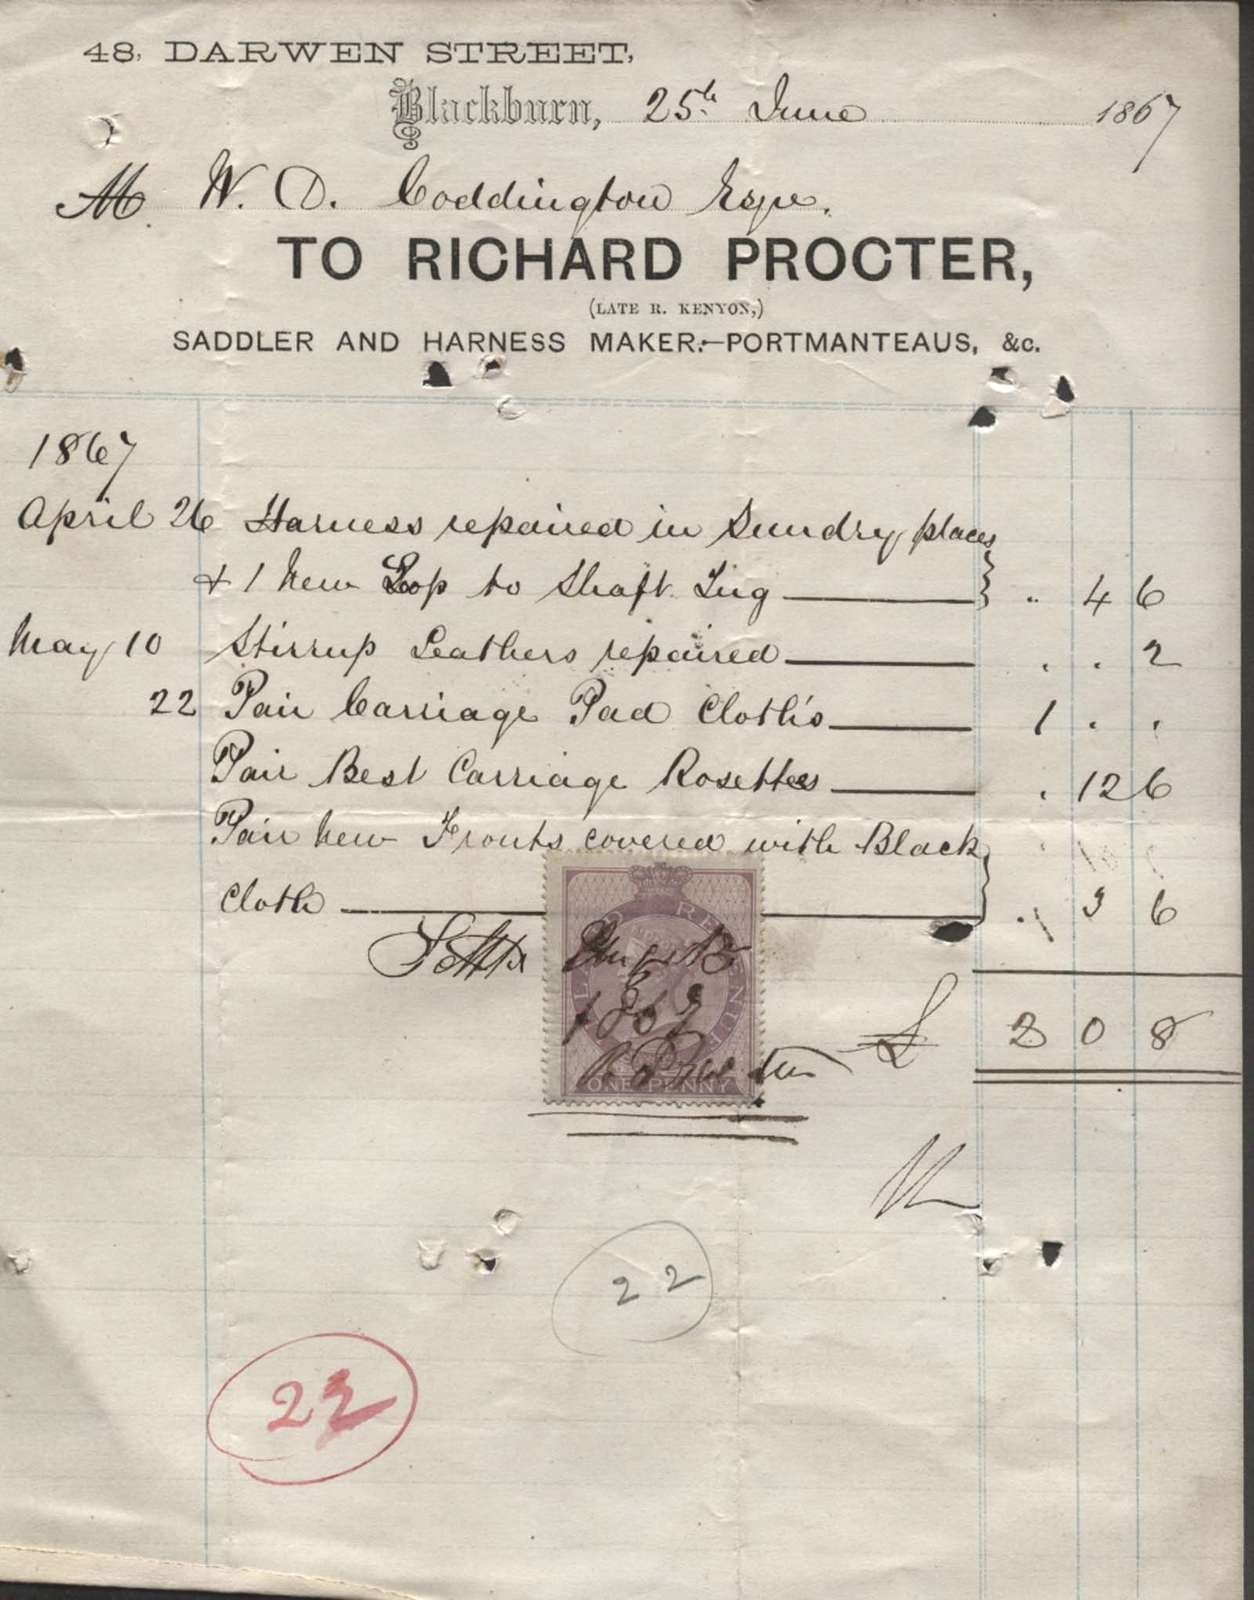 48, DARWEN STREET,
Blackburn, 25th June 1867
M W. D. Coddington Esqre.
TO RICHARD PROCTER,
(LATE R. KENYON,)
SADDLER AND HARNESS MAKER.—PORTMANTEAUS, &c.
1867
April 26 Harness repaired in Sundry places
+ 1 New Loop to Shaft Tug . 4 6
May 10 Stirrup Leathers repaired . . 2
22 Pair Carriage Pad Cloth's 1 . .
Pair Best Carriage Rosettes . 12 6
Pair New Fronts covered with Black
Cloth . 3 6
INLAND REVENUE
Settd Augst 13
1867
R Procter
ONE PENNY
£ 2 0 8
22
22